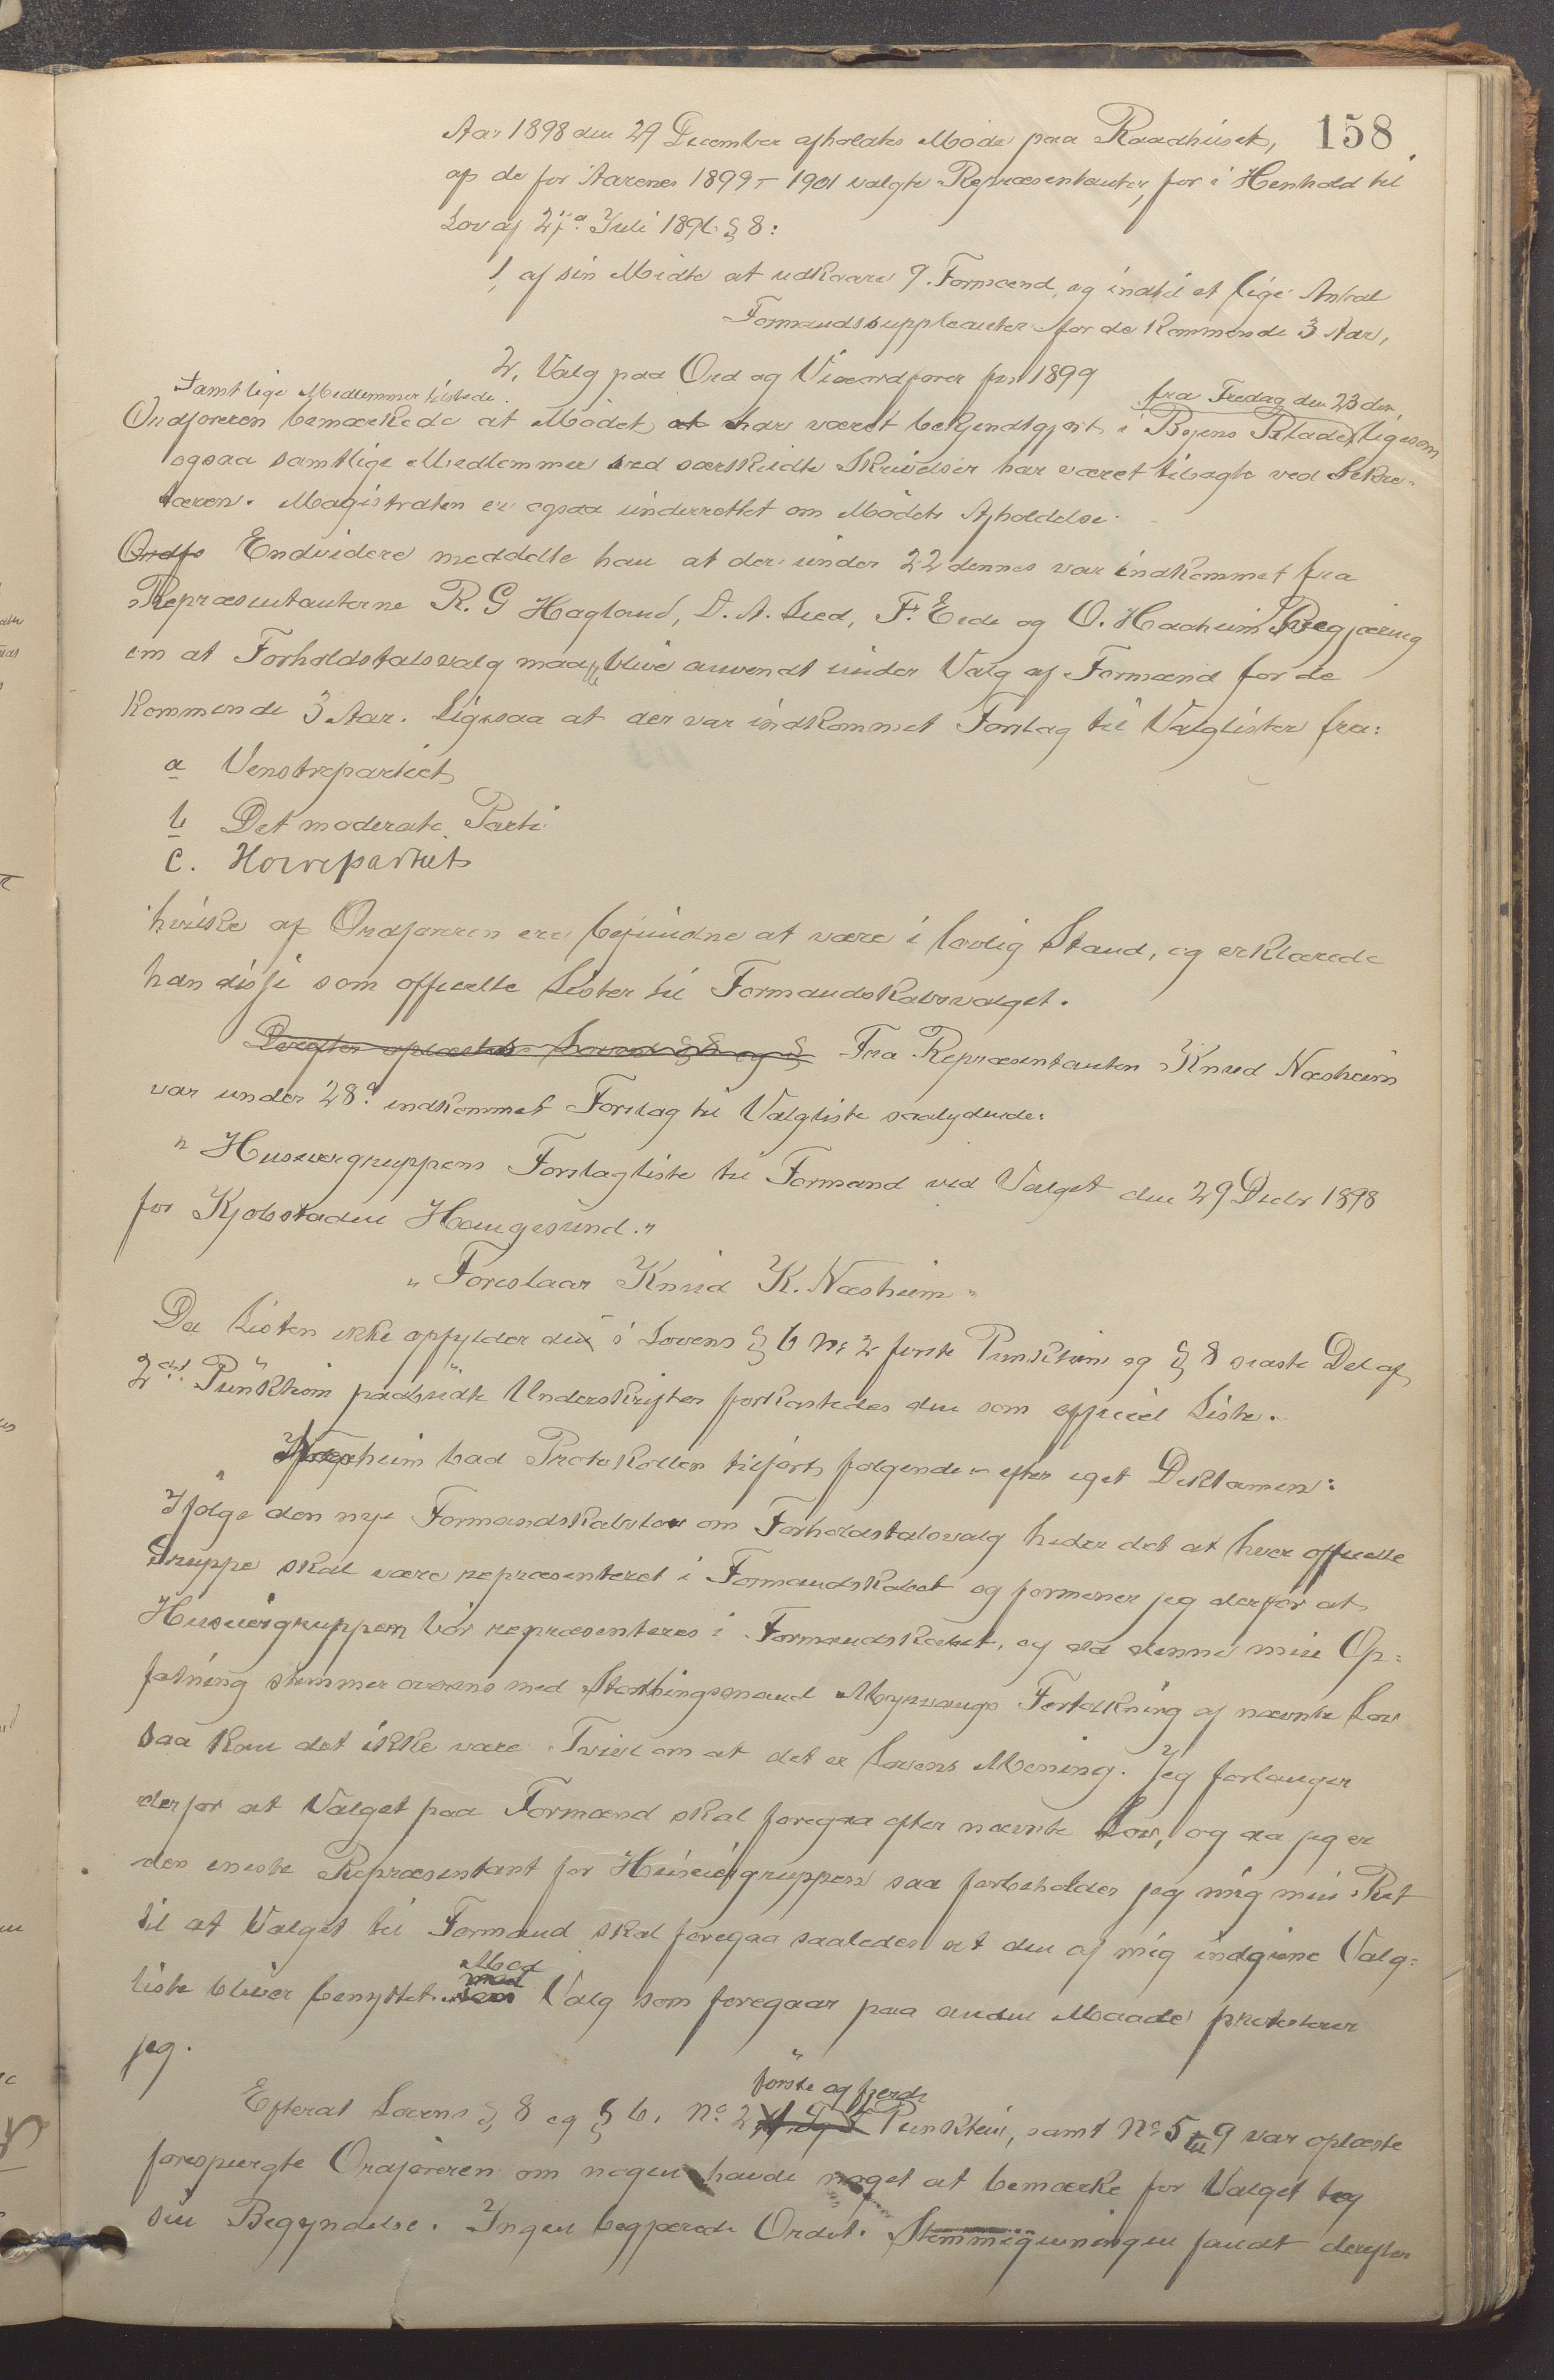 158
Aar 1898 den 29 December afholdtes Møde paa Raadhuset,
af de for Aarene 1899–1901 valgte Repræsentanter, for i Henhold til
Lov af 27de Juli 1896 § 8:
1, af sin Midte at udkaare 9. Formænd, og indtil et lige Antal
Formandssuppleanter for de kommende 3 Aar,
2, Valg paa Ord og Viceordfører for 1899
Samtlige Medlemmer tilstede.
fra Fredag den 23 ds.,
Ordføreren bemærkede at Mødet at har været bekjendtgjort i Byens Blade, ligesom
ogsaa samtlige Medlemmer ved særskildte Skrivelser har været tilsagte ved Sekre-
tæren. Magistraten er ogsaa underrettet om Mødets Afholdelse.
Ordfø Endvidere meddelte han at der under 22 dennes var indkommet fra
Repræsentanterne R. G Hagland, D. A. Lied, F. Eide og O. Haaheim Begjæring
om at Forholdstalsvalg maatte blive anvendt under Valg af Formænd for de
kommende 3 Aar. Ligesaa at der var indkommet Forslag til Valglister fra:
a Venstrepartiet
b Det moderate Parti
c. Høirepartiet
hvilke af Ordføreren ere befundne at være i lovlig Stand, og erklærede
han disse som officielle Lister til Formandskabsvalget.
Derefter oplæstes Lovens §8 og § Fra Repræsentanten Knud Næsheim
var under 28d indkommet Forslag til Valgliste saalydende:
"Huseiergruppens Forslagliste til Formænd ved Valget den 29 Decbr 1898
for Kjøbstaden Haugesund."
"Foreslaar Knud K. Næsheim"
Da Listen ikke opfylder den i Lovens § 6 No 2 første Punktum og § 8 sidste Del af
2det Punktum paabudte Underskrifter forkastedes den som officiel Liste.
Næsheim bad Protokollen tilført følgende efter eget Diktamen:
"Ifølge den nye Formandskabslov om Forholdstalsvalg heder det at hver officielle
Gruppe skal være repræsenteret i Formandskabet og formener jeg derfor at
Huseiergruppen bør repræsenteres i Formandskabet, og da denne min Op-
fatning stemmer overens med Storthingsmand Myrvangs Fortolkning af nævnte Lov
saa kan det ikke være Tvivl om at det er Lovens Mening. Jeg forlanger
derfor at Valget paa Formænd skal foregaa efter nævnte Lov, og da jeg er
den eneste Repræsentant for Huseiergruppen saa forbeholder jeg mig min Ret
til at Valget til Formænd skal foregaa saaledes at den af mig indgivne Valg-
Mod
liste bliver benyttet. Valg som foregaar paa anden Maade protesterer
jeg."
første og fjerde
Efterat Lovens § 8 og § 6, No 2, Punktum, samt No 5 til 9 var oplæste
forespurgte Ordføreren om nogen havde noget at bemærke før Valget tog
sin Begyndelse. Ingen begjærede Ordet. Stemmegivningen fandt derefter